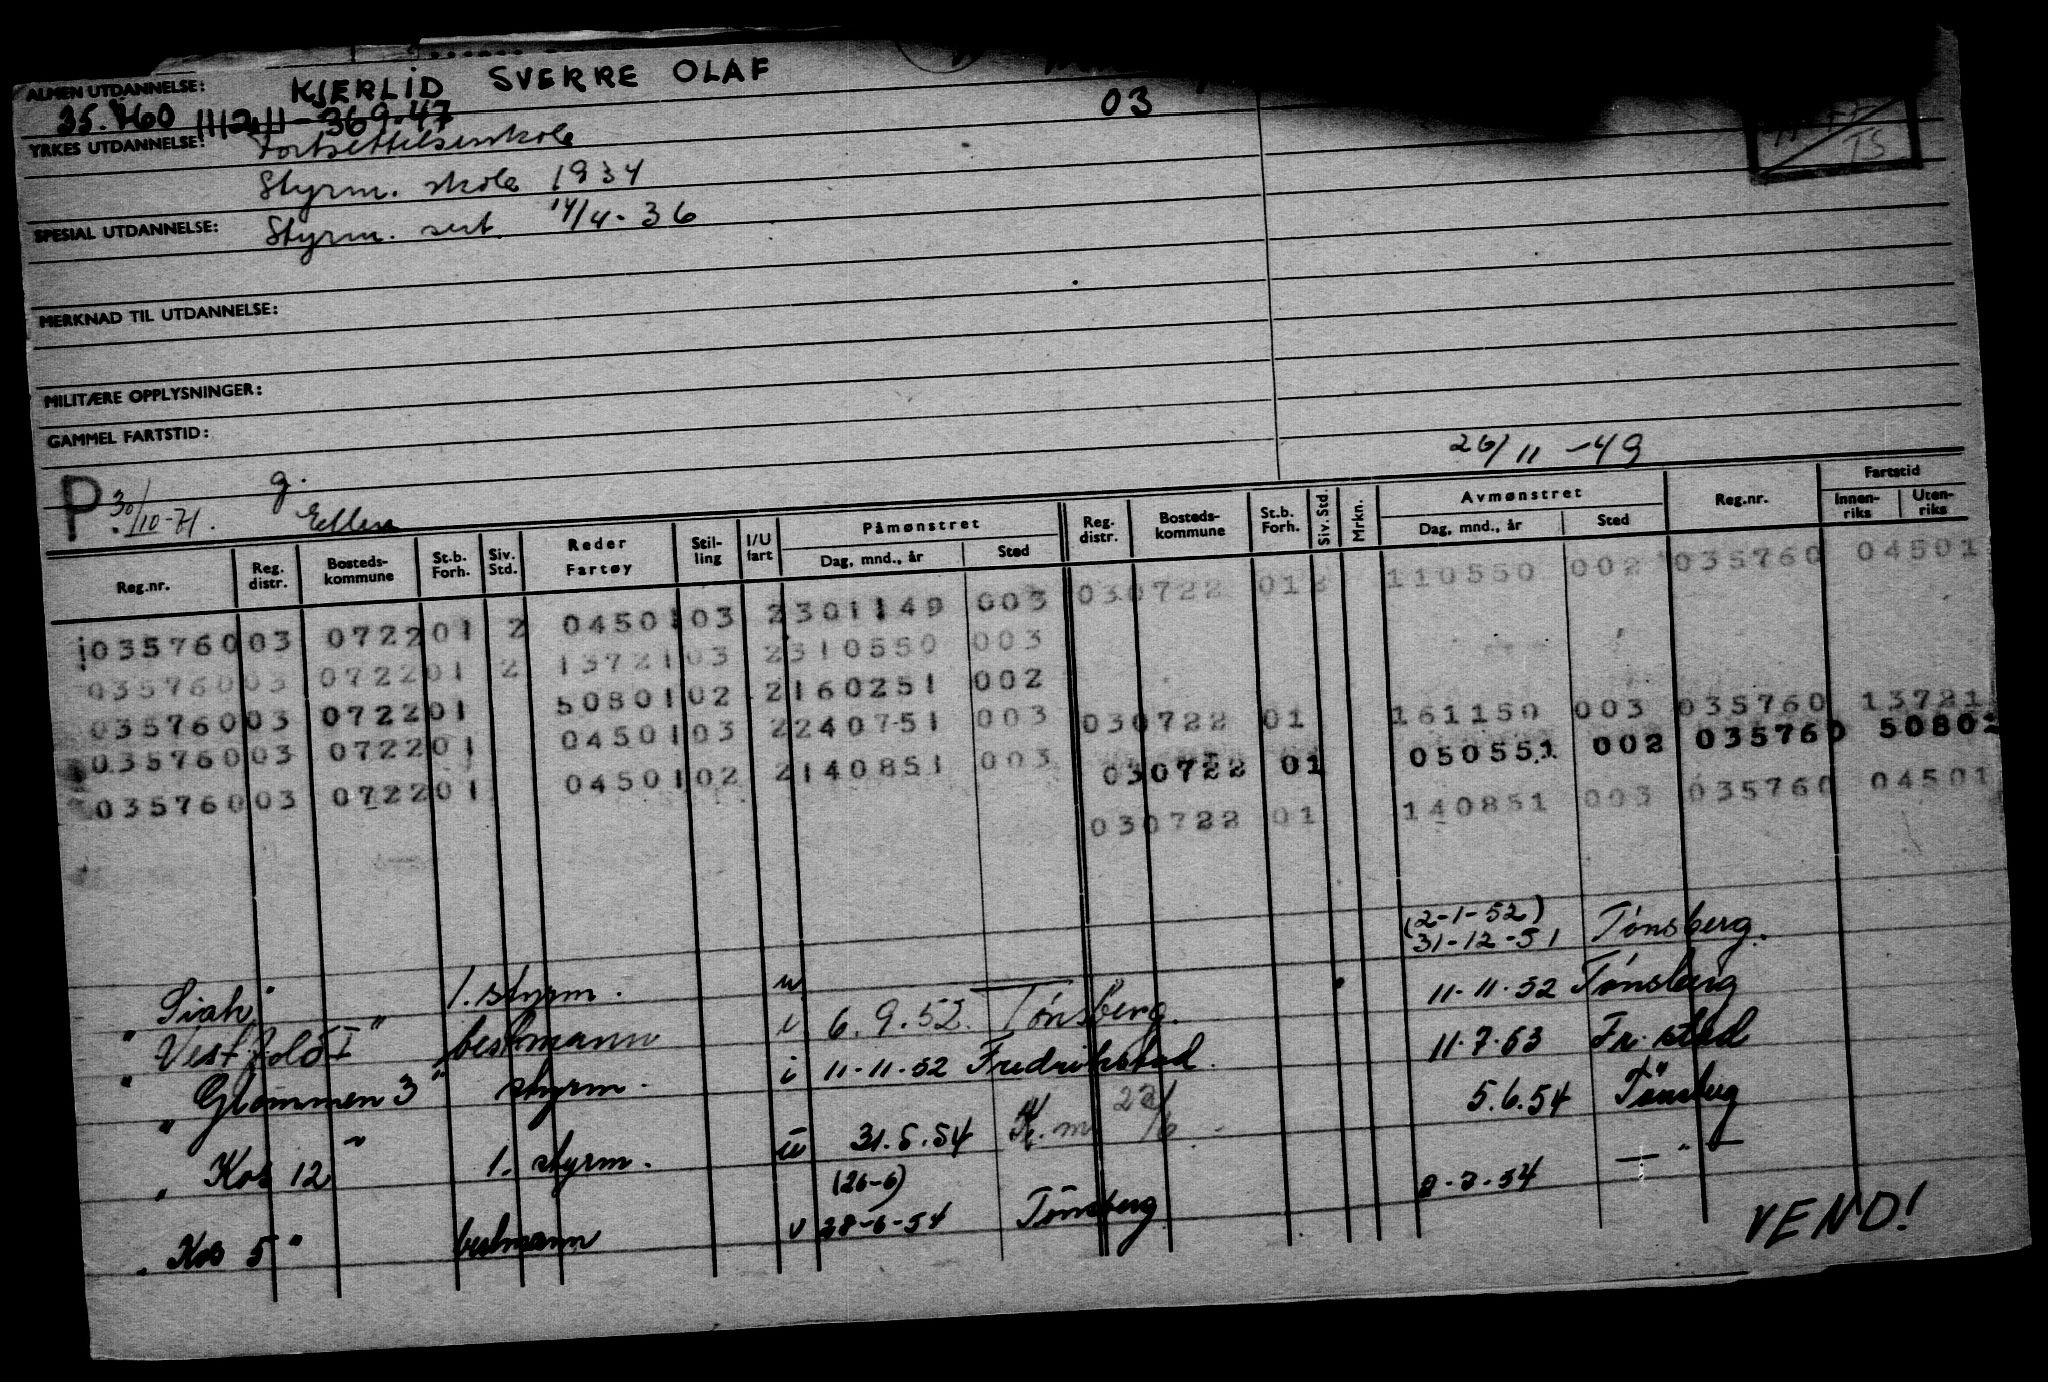 ALMEN UTDANNELSE: KJERLID SVERRE OLAF
35.760 03
YRKES UTDANNELSE: Fortsettelsesskole
Styrm. skole 1934
SPESIAL UTDANNELSE: Styrm. sert. 14/4-36
MERKNAD TIL UTDANNELSE:
MILITÆRE OPPLYSNINGER:
GAMMEL FARTSTID:
26/11-49
P. 30/10-71. g.
Reg.nr. Reg. distr. Bosteds-kommune St.b. Forh. Siv. Std. Reder Fartøy Stil-ling I/U fart Påmønstret Dag, mnd., år Sted Reg. distr. Bosteds-kommune St.b. Forh. Siv. Std. Mrkn. Avmønstret Dag, mnd., år Sted Reg.nr. Fartstid Innen-riks Uten-riks
035760 03 0722 01 2 04501 03 2 301149 003 03 0722 01 2 110550 002 035760 04501
035760 03 0722 01 2 13721 03 2 310550 003
035760 03 0722 01 50801 02 2 160251 002 03 0722 01 161150 003 035760 13721
035760 03 0722 01 04501 03 2 240751 003 03 0722 01 050551 002 035760 5080
035760 03 0722 01 04501 02 2 140851 003 03 0722 01 140851 003 035760 04501
(2-1-52)
" 1. styrm. u 31-12-51 Tønsberg.
" Vestfold I " bestmann i 6.9.52. Tønsberg. 11-11-52 Tønsberg
" Glommen 3 " styrm. i 11-11-52 Fredrikstad. 11-7-53 Fr.stad
" Kos 12 " 1. styrm. u 31.5.54 22/6 5.6.54 Tønsberg
(26-6)
" Kos 5 " bestmann u 28-6-54 Tønsberg — " —
VEND!